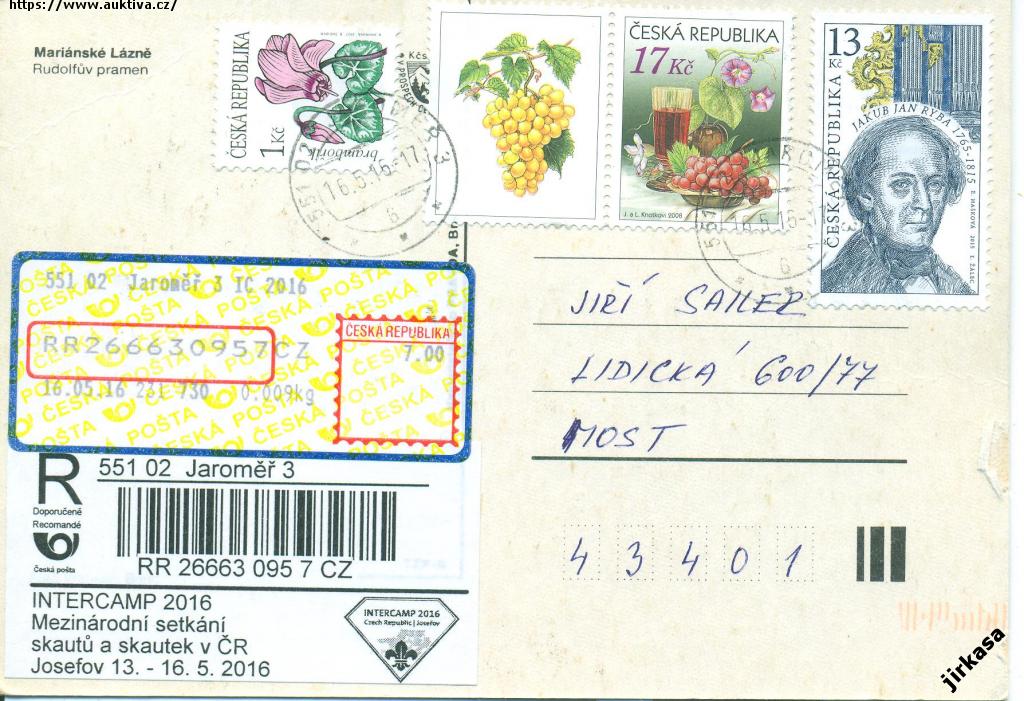 https://www.auktiva.cz/
Mariánské Lázně
Rudolfův pramen
ČESKÁ REPUBLIKA
1 Kč
brambořík
Kčs
V PROSPĚCH
ČESKÁ REPUBLIKA
17 Kč
J. a L. Knotkovi 2008
13 Kč
ČESKÁ REPUBLIKA
JAKUB JAN RYBA 1765-1815
E. HAŠKOVÁ 2015 E. ŽÁLEC
551 02
16.5.16-17
6
16.5.16-17
6
551 02 Jaroměř 3 IC 2016
ČESKÁ POŠTA
RR266630957CZ
ČESKÁ REPUBLIKA
7.00
16.05.16 231 730 0.009kg
R
Doporučeně
Recomandé
Česká pošta
551 02 Jaroměř 3
RR 26663 095 7 CZ
INTERCAMP 2016
Mezinárodní setkání
skautů a skautek v ČR
Josefov 13. - 16. 5. 2016
INTERCAMP 2016
Czech Republic | Josefov
JIŘÍ SAILER
LIDICKÁ 600/77
MOST
43401
jirkasa